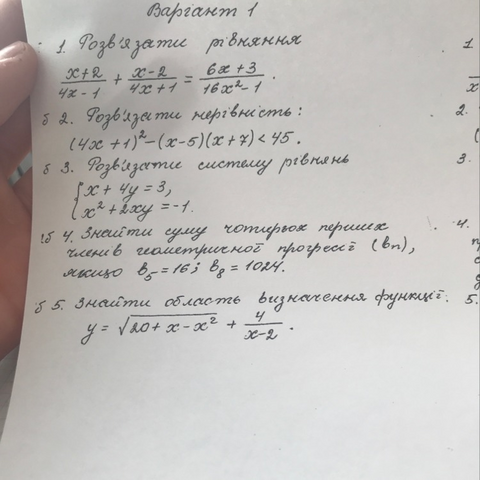 Варіант 1
1. Розв'язати рівняння
x+2/4x-1 + x-2/4x+1 = 6x+3/16x²-1.
б 2. Розв'язати нерівність:
(4x+1)²-(x-5)(x+7)<45.
б 3. Розв'язати систему рівнянь
{x+4y=3,
{x²+2xy=-1.
б 4. Знайти суму чотирьох перших
членів геометричної прогресії (bn),
якщо b₅=16; b₈=1024.
б 5. Знайти область визначення функції.
y = √20+x-x² + 4/x-2.
1
x
2.
(
3.
4.
5.